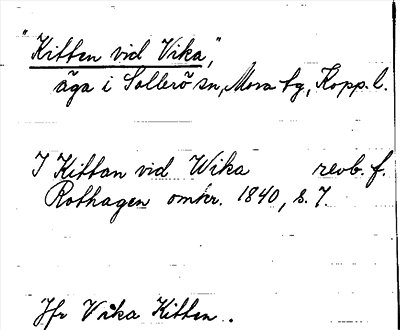 "Kitten vid Vika",
äga i Sollerö sn, Mora tg, Kopp. l.
I Kittan vid Wika revb. f.
Rothagen omkr. 1840, s. 7.
Jfr Vika Kitten.